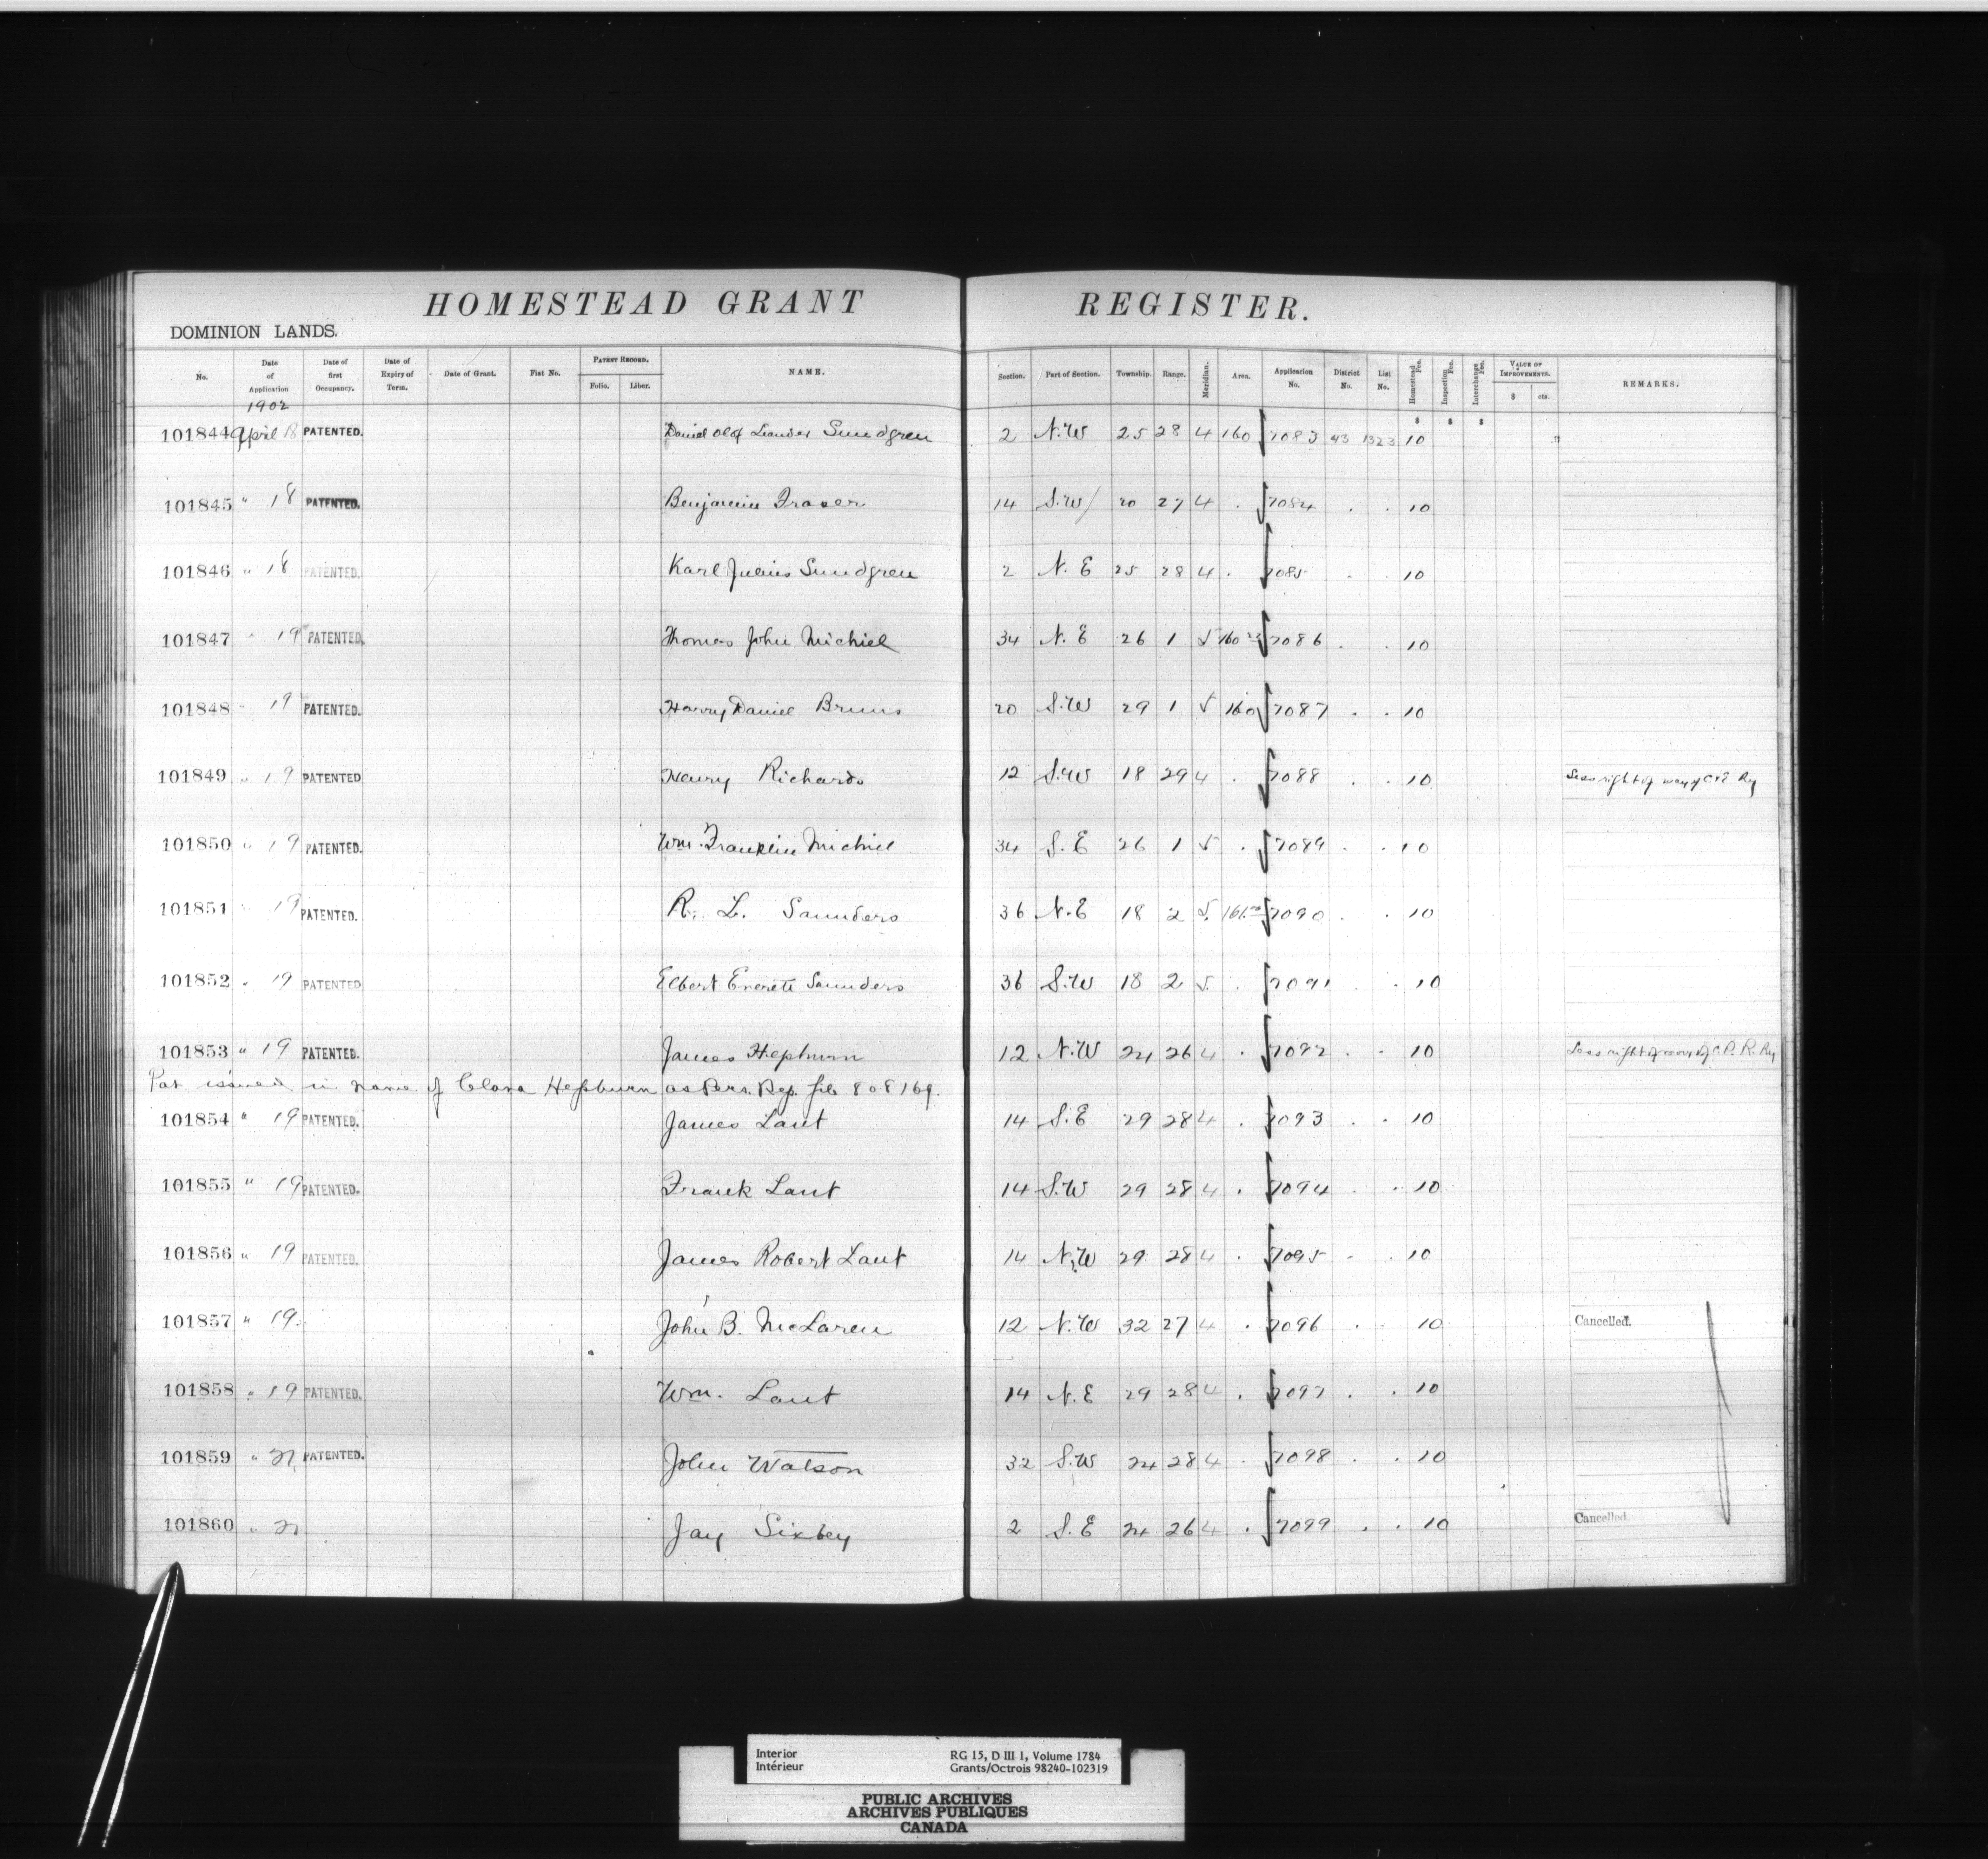 HOMESTEAD GRANT REGISTER.
DOMINION LANDS.
No. Date of Application Date of first Occupancy. Date of Expiry of Term. Date of Grant. Fiat No. PATENT RECORD. Folio. Liber. NAME. Section. Part of Section. Township. Range. Meridian. Area. Application No. District No. List No. Homestead Fee. Inspection Fee. Interchange Fee. VALUE OF IMPROVEMENTS. $ cts. REMARKS.
1902 $ $ $
101844 April 18 PATENTED. Daniel Olof Leander Sundgren 2 N.W 25 28 4 160 7083 43 1323 10
101845 " 18 PATENTED. Benjamin Fraser 14 S.W 20 27 4 . 7084 . . 10
101846 " 18 PATENTED. Karl Julius Sundgren 2 N.E 25 28 4 . 7085 . . 10
101847 " 19 PATENTED. Thomas John Michiel 34 N.E 26 1 5 160 7086 . . 10
101848 " 19 PATENTED. Harry Daniel Bruns 20 S.W 29 1 5 160 7087 . . 10
101849 " 19 PATENTED Henry Richards 12 S.W 18 29 4 . 7088 . . 10 Less right of way of C & E Ry
101850 " 19 PATENTED. Wm. Franklin Michiel 34 S.E 26 1 5 . 7089 . . 10
101851 " 19 PATENTED. R. L. Saunders 36 N.E 18 2 5. 161. 7090 . . 10
101852 " 19 PATENTED Elbert Everett Saunders 36 S.W 18 2 5. . 7091 . . 10
101853 " 19 PATENTED. James Hepburn 12 N.W 24 26 4 . 7092 . . 10 Less right of way of C.P.R. Ry
Pat issued in name of Clara Hepburn as Pers. Rep. file 808169.
101854 " 19 PATENTED. James Laut 14 S.E 29 28 4 . 7093 . . 10
101855 " 19 PATENTED. Frank Laut 14 S.W 29 28 4 . 7094 . . 10
101856 " 19 PATENTED. James Robert Laut 14 N.W 29 28 4 . 7095 . . 10
101857 " 19. John B. McLaren 12 N.W 32 27 4 . 7096 . . 10 Cancelled.
101858 " 19 PATENTED. Wm. Laut 14 N.E 29 28 4 . 7097 . . 10
101859 " 21 PATENTED. John Watson 32 S.W 24 28 4 . 7098 . . 10
101860 " 21 Jay Sixbey 2 S.E 24 26 4 . 7099 . . 10 Cancelled
Interior RG 15, D III 1, Volume 1784
Intérieur Grants/Octrois 98240-102319
PUBLIC ARCHIVES
ARCHIVES PUBLIQUES
CANADA